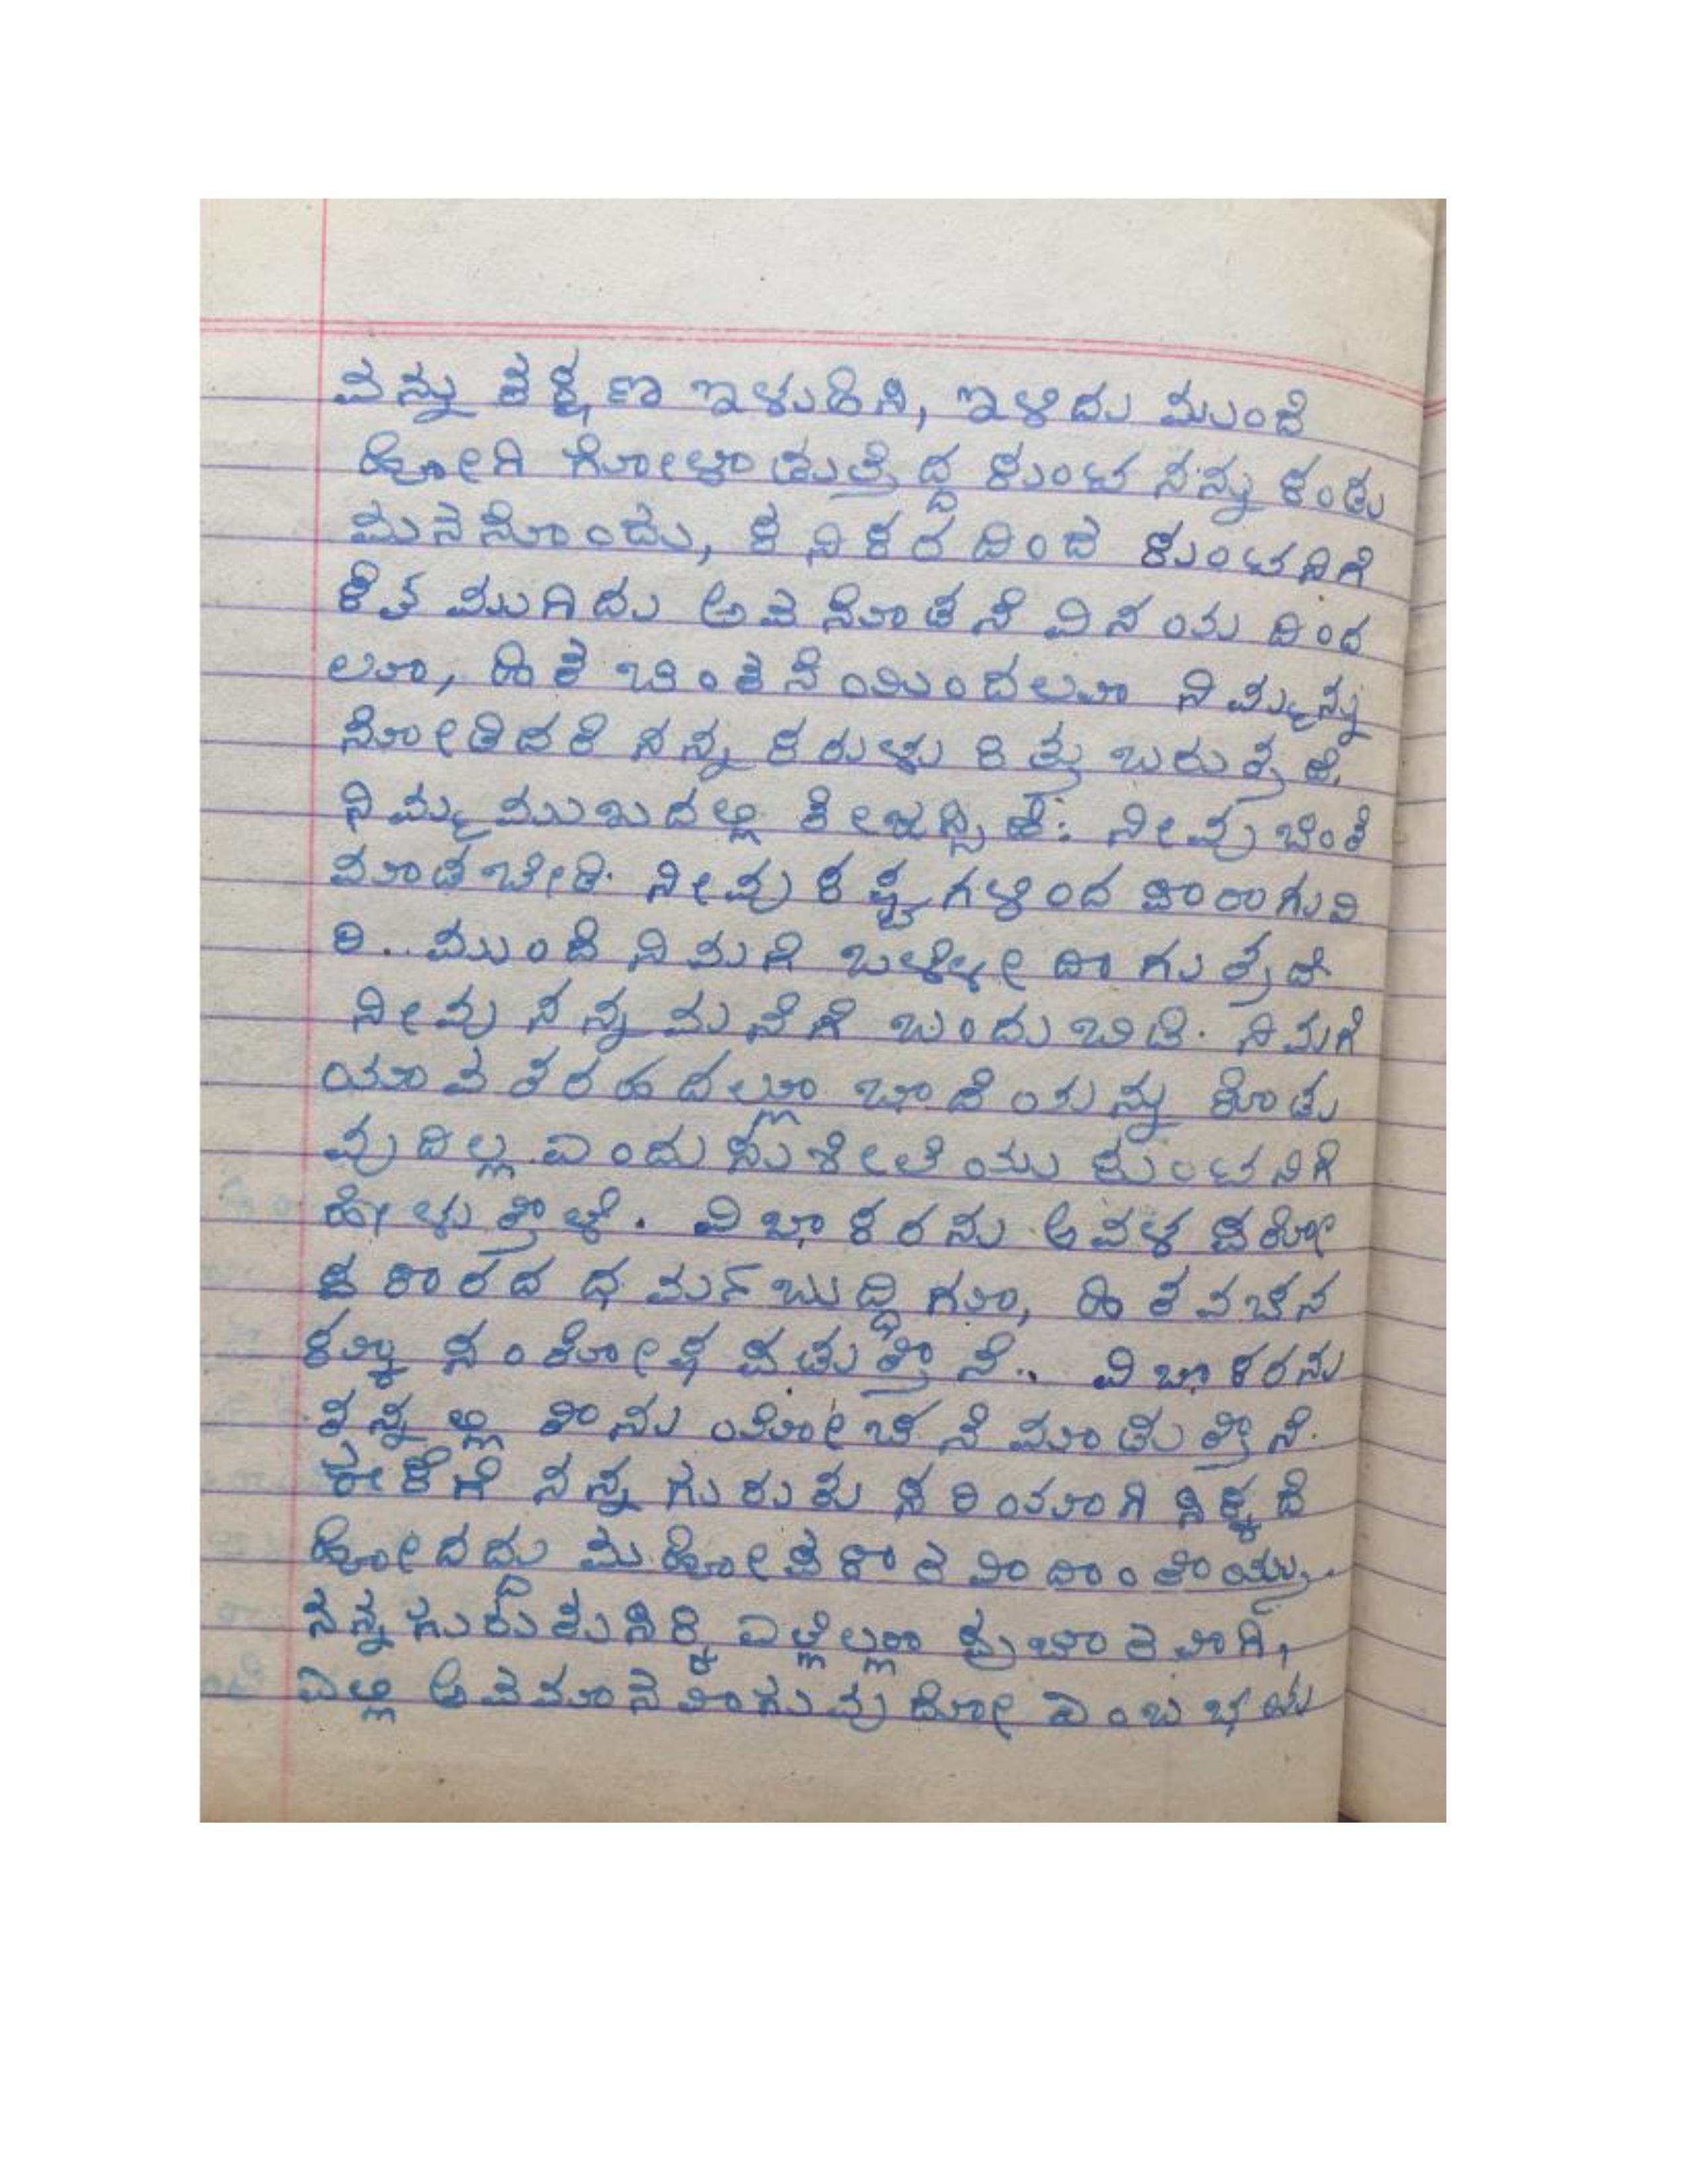 ವನ್ನು ತಕ್ಷಣ ಇಳುಹಿಸಿ, ಇಳಿದು ಮುಂದೆ
ಹೋಗಿ ಗೋಳಾಡುತ್ತಿದ್ದ ಕುಂಟನನ್ನು ಕಂಡು
ಮನನೊಂದು, ಕನಿಕರದಿಂದ ಕುಂಟನಿಗೆ
ಕೈ ಮುಗಿದು ಅವನೊಡನೆ ವಿನಯದಿಂದ
ಲೂ, ಹಿತ ಚಿಂತನೆಯಿಂದಲೂ ನಿಮ್ಮನ್ನು
ನೋಡಿದರೆ ನನ್ನ ಕರುಳು ಕಿತ್ತು ಬರುತ್ತದೆ.
ನಿಮ್ಮ ಮುಖದಲ್ಲಿ ತೇಜಸ್ಸಿದೆ. ನೀವು ಚಿಂತೆ
ಮಾಡಬೇಡಿ. ನೀವು ಕಷ್ಟಗಳಿಂದ ಪಾರಾಗುವಿ
ರಿ.. ಮುಂದೆ ನಿಮಗೆ ಒಳ್ಳೇದಾಗುತ್ತದೆ.
ನೀವು ನನ್ನ ಮನೆಗೆ ಬಂದು ಬಿಡಿ. ನಿಮಗೆ
ಯಾವ ತರಹದಲ್ಲೂ ಬಾದೆಯನ್ನು ಕೊಡು
ವುದಿಲ್ಲ ಎಂದು ಸುಶೀಲೆಯು ಕುಂಟನಿಗೆ
ಹೇಳುತ್ತಾಳೆ. ವಿಭಾಕರನು ಅವಳ ಪರೋ
ಪಕಾರದ ಧರ್ಮಬುದ್ಧಿಗೂ, ಹಿತವಚನ
ಕ್ಕೂ ಸಂತೋಷ ಪಡುತ್ತಾನೆ.. ವಿಭಾಕರನು
ತನ್ನಲ್ಲಿ ತಾನು ಯೋಚನೆ ಮಾಡುತ್ತಾನೆ.
ಈಕೆಗೆ ನನ್ನ ಗುರುತು ಸರಿಯಾಗಿ ಸಿಕ್ಕದೆ
ಹೋದದ್ದು ಮಹೋಪಕಾರವಾದಾಂತಾಯ್ತು.
ನನ್ನ ಗುರುತು ಸಿಕ್ಕಿ ಎಲ್ಲೆಲ್ಲೂ ಪ್ರಚಾರವಾಗಿ,
ಎಲ್ಲಿ ಅವಮಾನವಾಗುವುದೋ ಎಂಬ ಭಯ